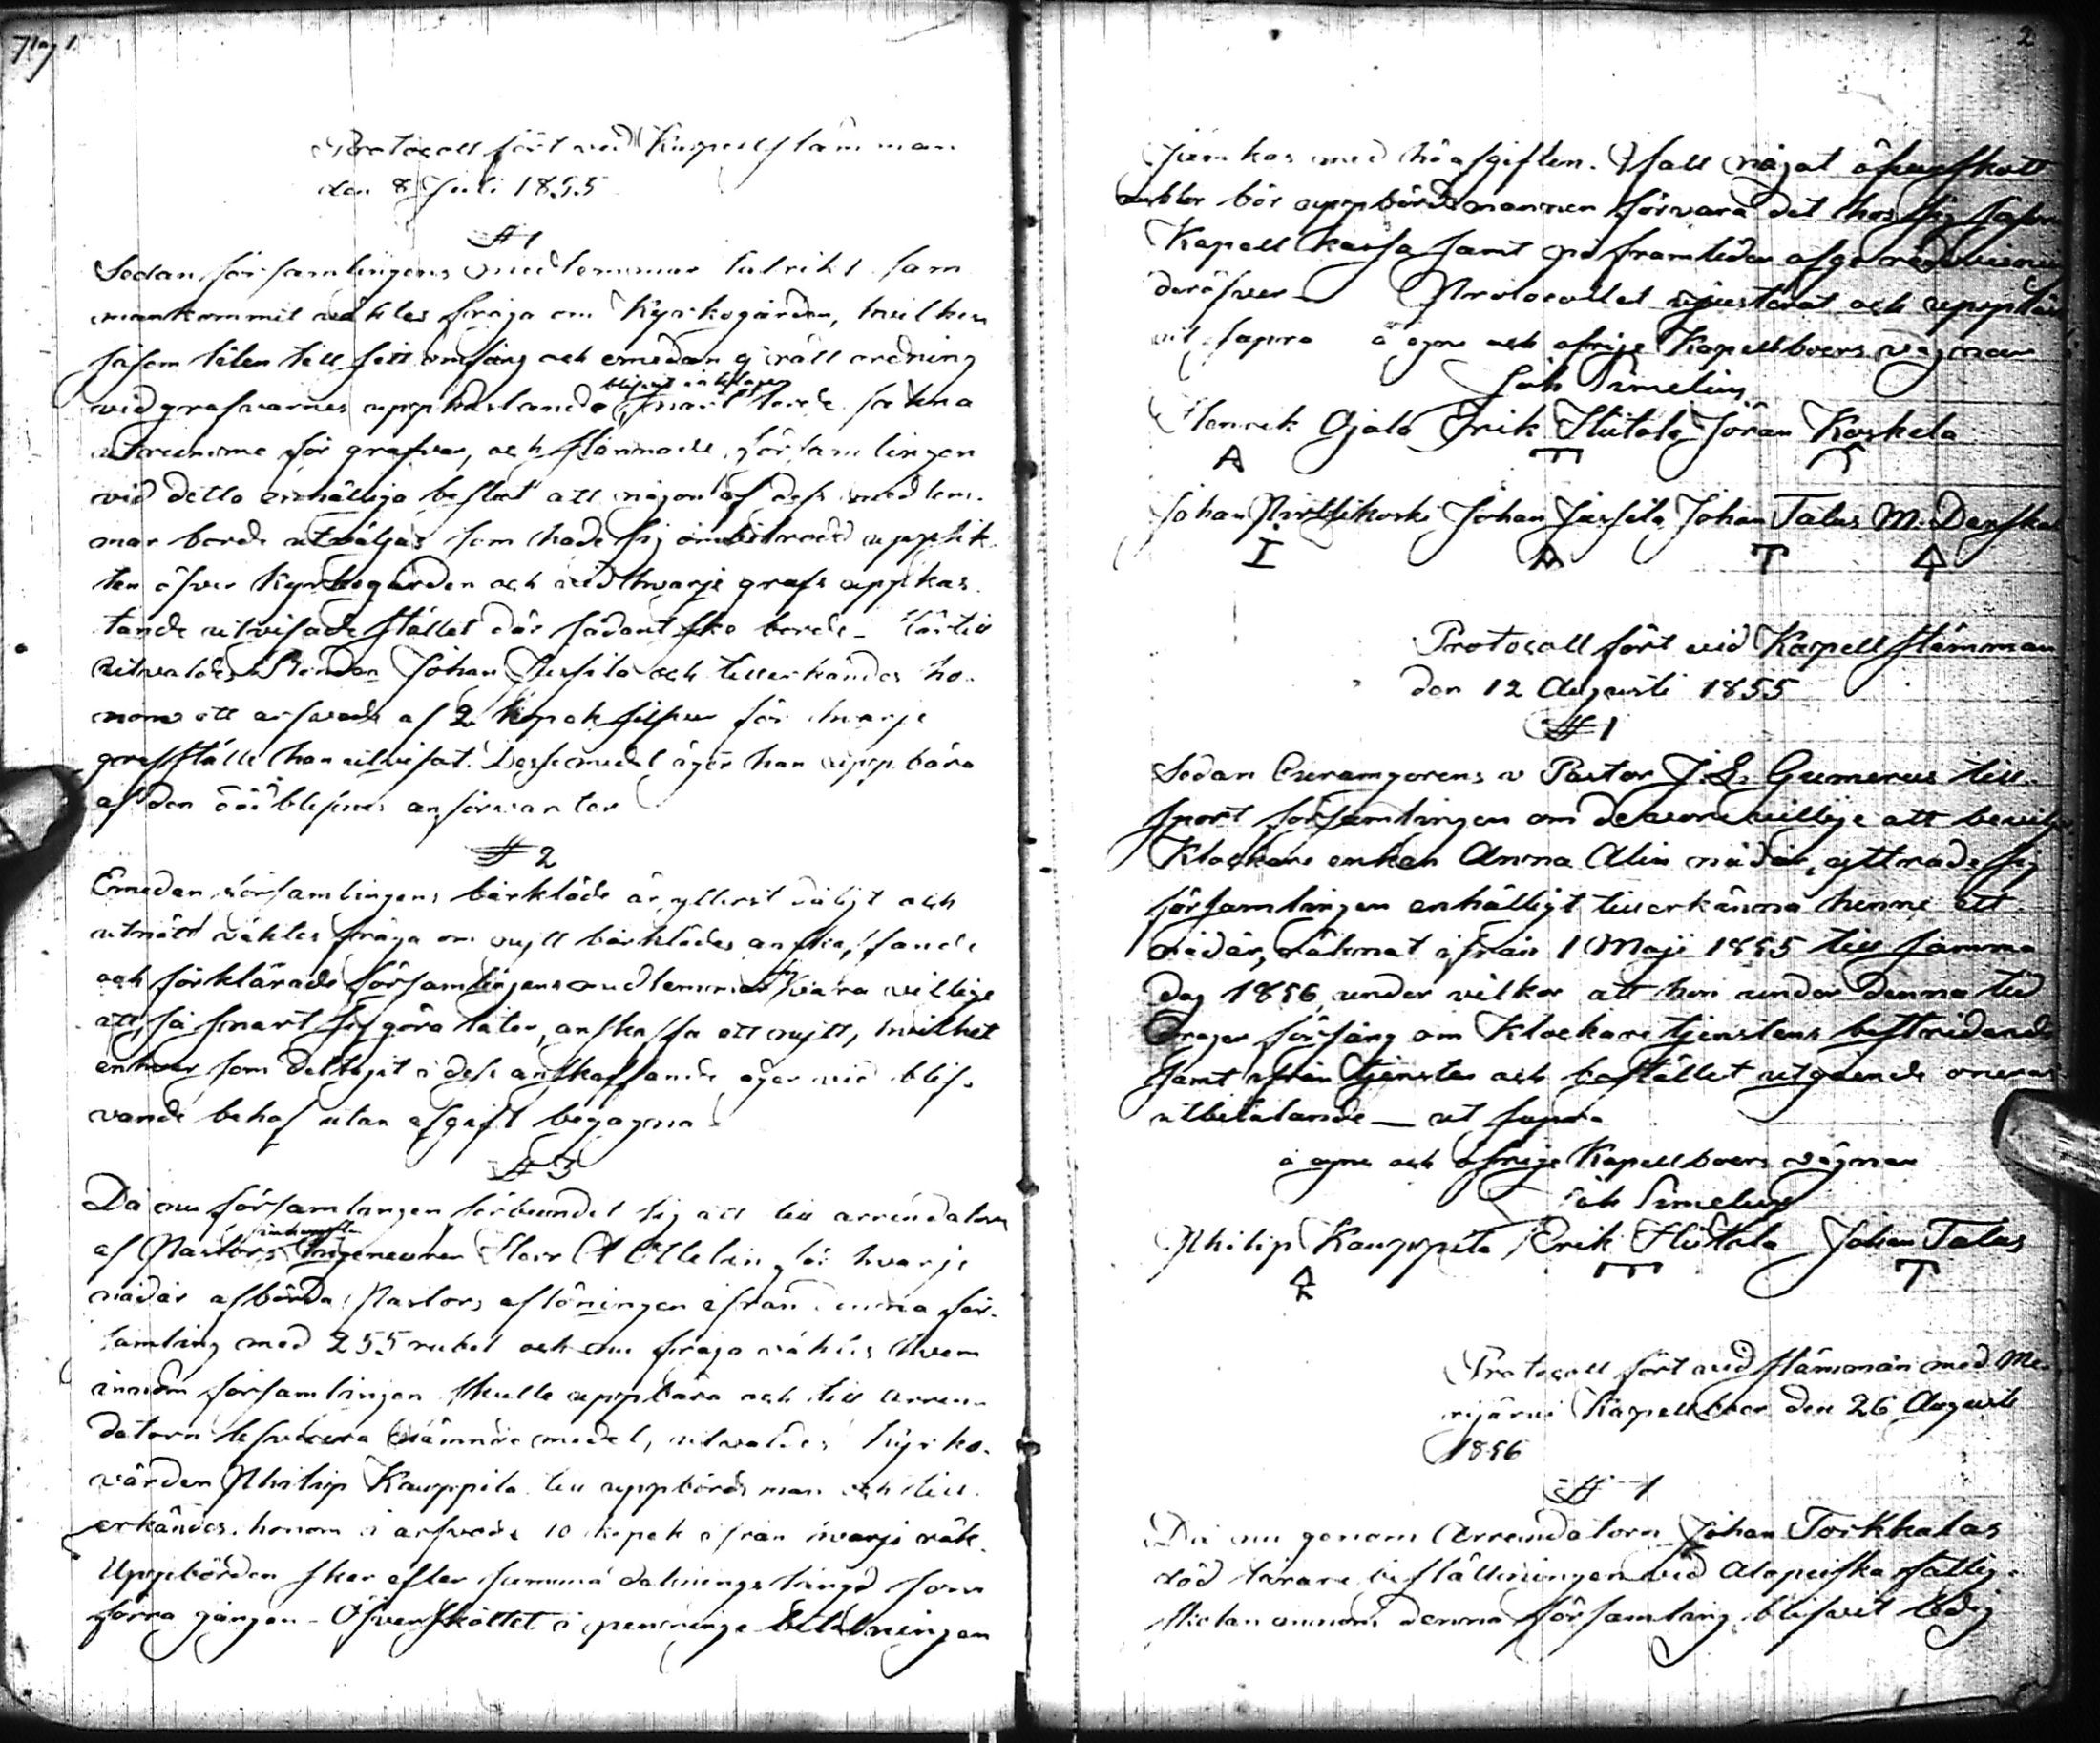 Pag 1
Protocoll fört vid Kapellstämman
den 8 Juli 1855
§ 1
Sedan församlingens medlemmar talrikt sam
mankommit väktes fråga om Kyrkogården, hvilken
såsom liten till sitt omfång och emedan ej rätt ordning
blifvit iakttagen
vid grafvarnes uppkastande snart torde sakna
utrymme för grafvar, och stannade församlingen
vid detta enhälliga beslut att någon af dess medlem-
mar borde utväljas som hade sig ombetrodd uppsik-
ten öfver Kyrkogården och vid hvarje grafs uppkas-
tande utvisade stället där sådant ske borde - Härtill
utvaldes Bonden Johan Jussila och tillerkändes ho-
nom ett arfvode af 2 kopek silfver för hvarje
grafställe han utvisat. Dessemedel äger han uppbära
af den dödblefnes anförvanter
§ 2
Emedan församlingens bårkläde är ytterst dåligt och
utnött väktes fråga om nytt bårklädes anskaffande
och förklarade församlingens medlemmar vara villige
att så snart sig göra låter, anskaffa ett nytt, hvilket
enhvar som deltagit i dess anskaffande äger vid blif-
vande behof utan afgift begagna
§ 3
Då nu församlingen förbundet sig att till arrendatorn
inkomster
af Pastors Ingeneuren Herr A för hvarje
nådår afbörda Pastors aflöningen ifrån denna för-
samling med 255 rubel och nu fråga väktes hvem
inom församlingen skulle uppbära och till arren-
datorn lefverera nämnde medel, utvaldes Kyrko-
värden Philip Kauppila till uppbördsman och till-
erkändes honom i arfvode 10 kopek ifrån hvarje rök.
Uppbörden sker efter samma längd som
förra gången - Öfverskottet i penninge betalningen
2
jemkas med höafgiften. Ifall något öfverskott
blir bör uppbördsmannen förvara det hos sig såsom
Kapell kassa samt på framtiden afge redovisning
deröfver - Protocollet justerat och uppläst
ut supra å egne och öfrige Kapellboers vägnar
Joh Simelius
Henrik Ojala Erik Hietala Jöran Koskela
Johan Pirttikoski Johan Jussila Johan Talus M.
Protocoll fört vid Kapellstämman
den 12 Augusti 1855
§ 1
Sedan v Pastor J. L. Gumerus till-
sport församlingen om de vore villige att bevilja
Klockare enkan Anna Alin nådår, yttrade sig
församlingen enhälligt tillerkänna henne ett
nådår, räknat ifrån 1 Maji 1855 till samma
dag 1856 under vilkor att hon under denna tid
drager försorg om Klockare tjenstens bestridande
samt ifrån tjensten och bostället utgående oneras
utbetalande — ut supra
å egne och öfrige Kapellboers vägnar
Joh Simelius
Philip Kauppila Erik Hietala Johan Talus
Protocoll fört vid stämman med Me-
rijärvi Kapellboer den 26 Augusti
1856
§ 1
Då nu genom Arrendatorn Johan Torkkolas
död lärare beställningen vid fattig-
skolan innom denna församling blifvit ledig